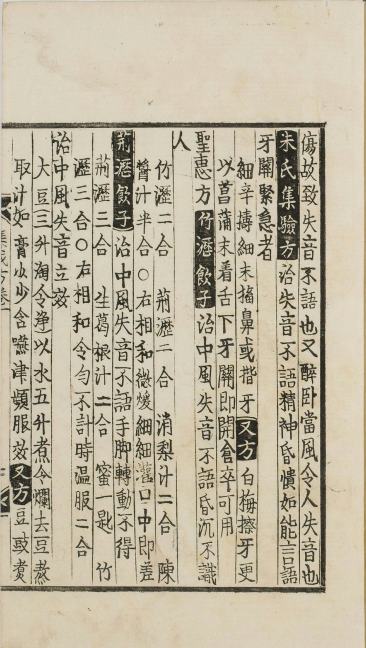 傷故致失音不語也又醉卧當風令人失音也
朱氏集驗方治失音不語精神昏憒如能言語
牙關緊急者
細辛擣細末搐鼻或揩牙又方白梅擦牙更
以菖蒲末着舌下牙關即開倉卒可用
聖惠方竹瀝飲子治中風失音不語昏沉不識
人
竹瀝二合 荊瀝二合 消梨汁二合 陳
醬汁半合○右相和微煖細細灌口中即差
荊瀝飲子治中風失音不語手脚轉動不得
荊瀝三合 生葛根汁二合 蜜一匙 竹
瀝三合○右相和令勻不計時温服二合
治中風失音立效
大豆三升淘令淨以水五升煮令爛去豆熬
取汁如膏少少含嚥津頻服效又方豆豉煑